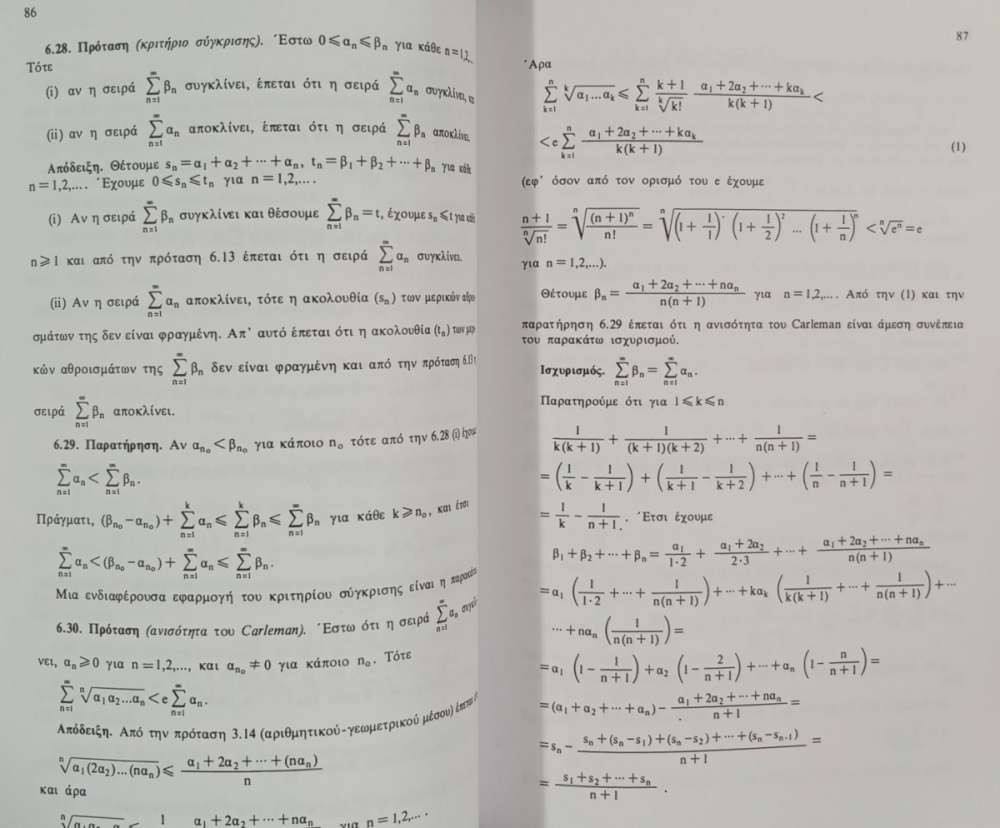 86
6.28. Πρόταση (κριτήριο σύγκρισης). Ἔστω 0 ⩽ αₙ ⩽ βₙ για κάθε n = 1,2,..
Τότε
(i) αν η σειρά ∑_{n=1}^{∞} βₙ συγκλίνει, έπεται ότι η σειρά ∑_{n=1}^{∞} αₙ συγκλίνει,
(ii) αν η σειρά ∑_{n=1}^{∞} αₙ αποκλίνει, έπεται ότι η σειρά ∑_{n=1}^{∞} βₙ αποκλίνει.
Απόδειξη. Θέτουμε sₙ = α₁ + α₂ + ··· + αₙ, tₙ = β₁ + β₂ + ··· + βₙ για κάθε
n = 1,2,... . Ἔχουμε 0 ⩽ sₙ ⩽ tₙ για n = 1,2,... .
(i) Αν η σειρά ∑_{n=1}^{∞} βₙ συγκλίνει και θέσουμε ∑_{n=1}^{∞} βₙ = t, έχουμε sₙ ⩽ t για κάθε
n ⩾ 1 και από την πρόταση 6.13 έπεται ότι η σειρά ∑_{n=1}^{∞} αₙ συγκλίνει.
(ii) Αν η σειρά ∑_{n=1}^{∞} αₙ αποκλίνει, τότε η ακολουθία (sₙ) των μερικών αθροι-
σμάτων της δεν είναι φραγμένη. Απ' αυτό έπεται ότι η ακολουθία (tₙ) των μερι-
κών αθροισμάτων της ∑_{n=1}^{∞} βₙ δεν είναι φραγμένη και από την πρόταση 6.13 η
σειρά ∑_{n=1}^{∞} βₙ αποκλίνει.
6.29. Παρατήρηση. Αν α_{n₀} < β_{n₀} για κάποιο n₀ τότε από την 6.28 (i) έχουμε
∑_{n=1}^{∞} αₙ < ∑_{n=1}^{∞} βₙ.
Πράγματι, (β_{n₀} − α_{n₀}) + ∑_{n=1}^{k} αₙ ⩽ ∑_{n=1}^{k} βₙ ⩽ ∑_{n=1}^{∞} βₙ για κάθε k ⩾ n₀, και έτσι
∑_{n=1}^{∞} αₙ < (β_{n₀} − α_{n₀}) + ∑_{n=1}^{∞} αₙ ⩽ ∑_{n=1}^{∞} βₙ.
Μια ενδιαφέρουσα εφαρμογή του κριτηρίου σύγκρισης είναι η παρακάτω
6.30. Πρόταση (ανισότητα του Carleman). Ἔστω ότι η σειρά ∑_{n=1}^{∞} αₙ συγκλί-
νει, αₙ ⩾ 0 για n = 1,2,..., και α_{n₀} ≠ 0 για κάποιο n₀. Τότε
∑_{n=1}^{∞} ⁿ√(α₁α₂...αₙ) < e ∑_{n=1}^{∞} αₙ.
Απόδειξη. Από την πρόταση 3.14 (αριθμητικού-γεωμετρικού μέσου) έπεται
ⁿ√(α₁(2α₂)...(nαₙ)) ⩽ (α₁ + 2α₂ + ··· + (nαₙ)) / n
και άρα
α₁ + 2α₂ + ··· + nαₙ για n = 1,2,... .
87
Ἄρα
∑_{k=1}^{n} ᵏ√(α₁...αₖ) ⩽ ∑_{k=1}^{n} (k+1)/ᵏ√(k!) (α₁ + 2α₂ + ··· + kαₖ)/(k(k+1)) <
< e ∑_{k=1}^{n} (α₁ + 2α₂ + ··· + kαₖ)/(k(k+1)) (1)
(εφ' όσον από τον ορισμό του e έχουμε
(n+1)/ⁿ√(n!) = ⁿ√((n+1)ⁿ/n!) = ⁿ√((1 + 1/1)¹ (1 + 1/2)² ... (1 + 1/n)ⁿ) < ⁿ√(eⁿ) = e
για n = 1,2,...).
Θέτουμε βₙ = (α₁ + 2α₂ + ··· + nαₙ)/(n(n+1)) για n = 1,2,... . Από την (1) και την
παρατήρηση 6.29 έπεται ότι η ανισότητα του Carleman είναι άμεση συνέπεια
του παρακάτω ισχυρισμού.
Ισχυρισμός. ∑_{n=1}^{∞} βₙ = ∑_{n=1}^{∞} αₙ.
Παρατηρούμε ότι για 1 ⩽ k ⩽ n
1/(k(k+1)) + 1/((k+1)(k+2)) + ··· + 1/(n(n+1)) =
= (1/k − 1/(k+1)) + (1/(k+1) − 1/(k+2)) + ··· + (1/n − 1/(n+1)) =
= 1/k − 1/(n+1). Ἔτσι έχουμε
β₁ + β₂ + ··· + βₙ = α₁/(1·2) + (α₁ + 2α₂)/(2·3) + ··· + (α₁ + 2α₂ + ··· + nαₙ)/(n(n+1))
= α₁ (1/(1·2) + ··· + 1/(n(n+1))) + ··· + kαₖ (1/(k(k+1)) + ··· + 1/(n(n+1))) + ···
··· + nαₙ (1/(n(n+1))) =
= α₁ (1 − 1/(n+1)) + α₂ (1 − 2/(n+1)) + ··· + αₙ (1 − n/(n+1)) =
= (α₁ + α₂ + ··· + αₙ) − (α₁ + 2α₂ + ··· + nαₙ)/(n+1) =
= sₙ − (sₙ + (sₙ − s₁) + (sₙ − s₂) + ··· + (sₙ − sₙ₋₁))/(n+1) =
= (s₁ + s₂ + ··· + sₙ)/(n+1) .